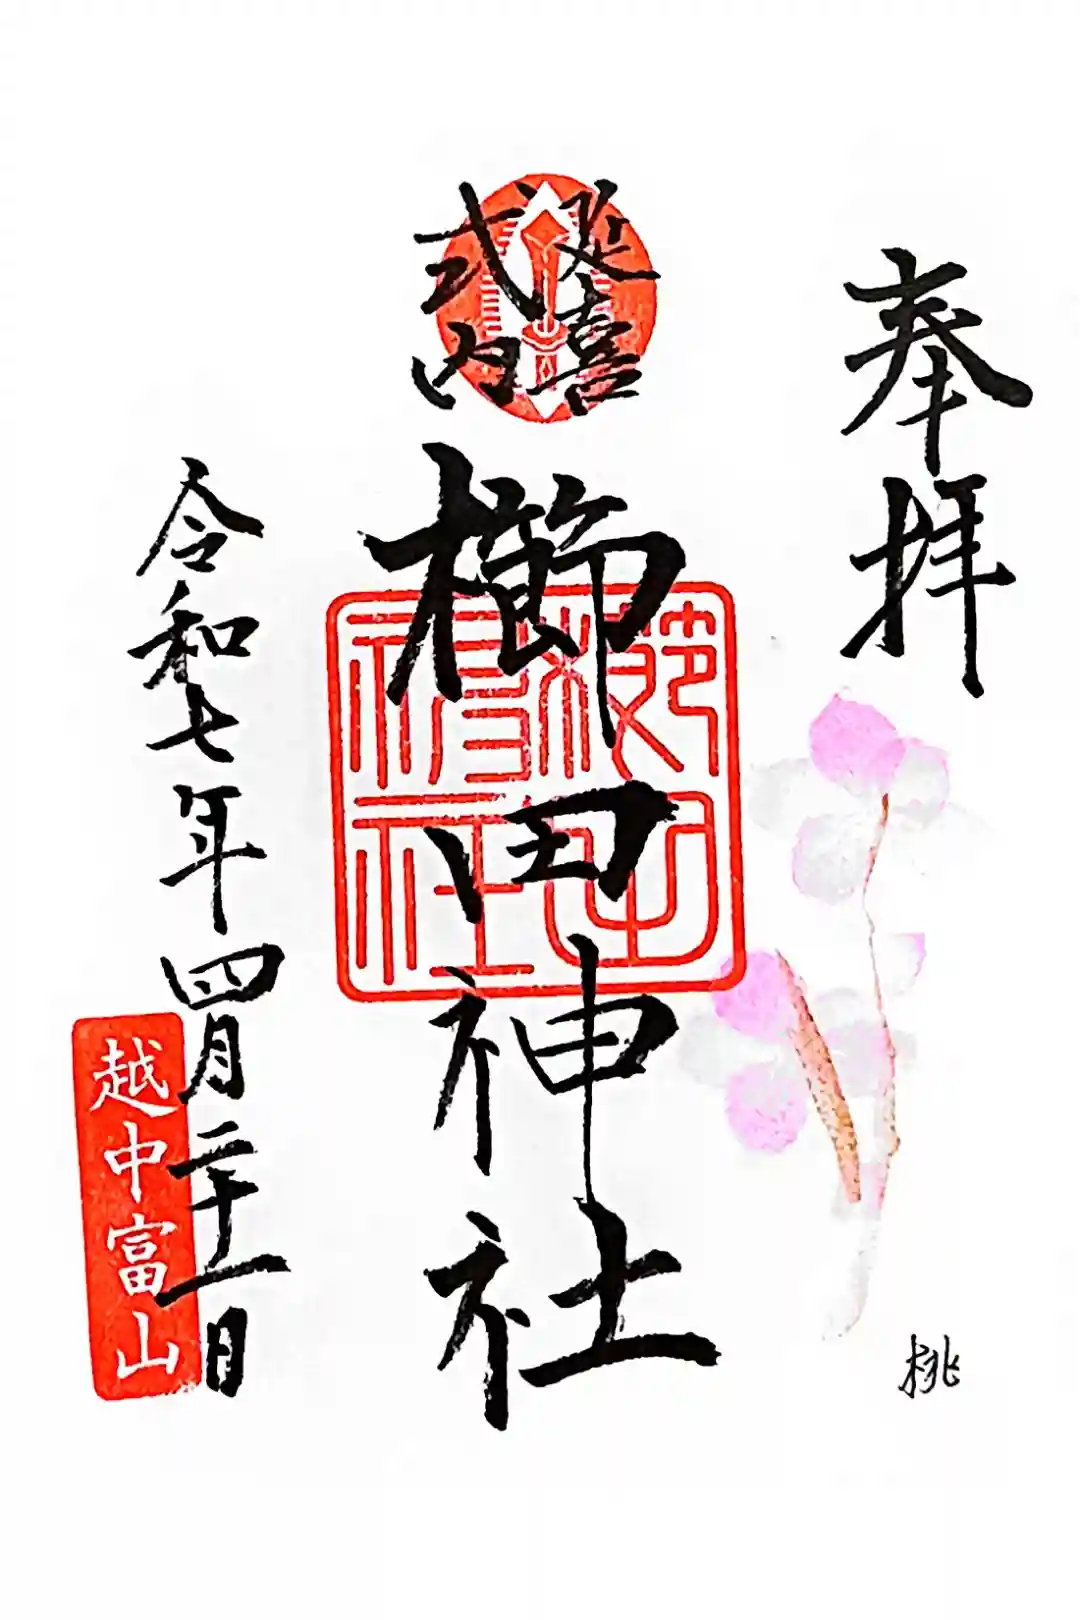 奉拝
桃
延喜
式内
櫛田神社
櫛田
神社
令和七年四月二十一日
越中富山